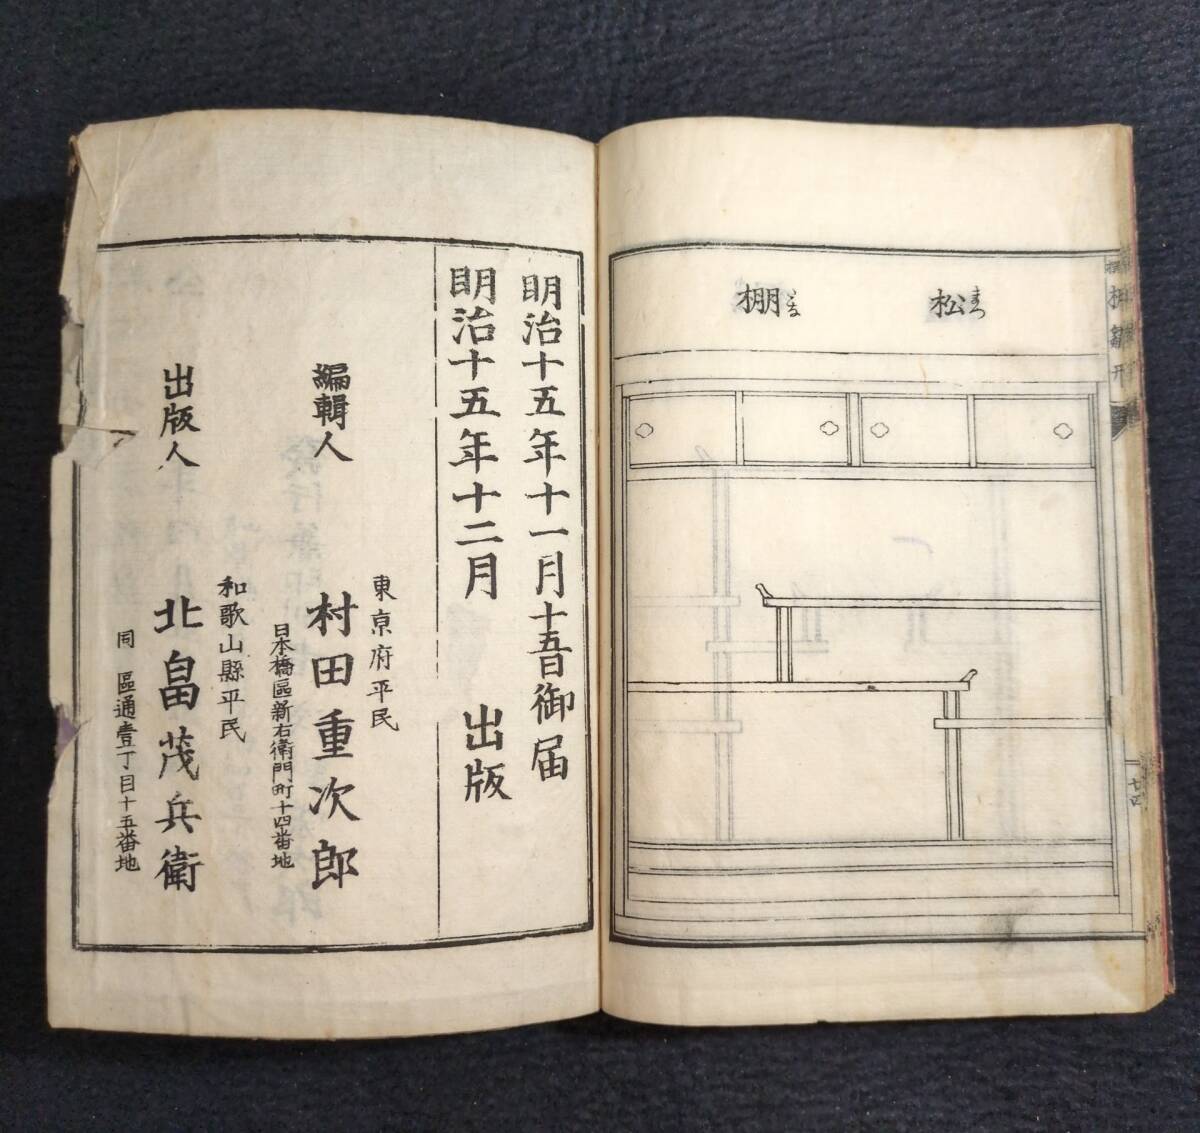 松まつ
棚だな
棚雛形
廿四
明治十五年十一月十五日御届
明治十五年十二月 出版
東京府平民
編輯人 村田重次郎
日本橋區新右衛門町十四番地
和歌山縣平民
出版人 北畠茂兵衛
同 區通壹丁目十五番地